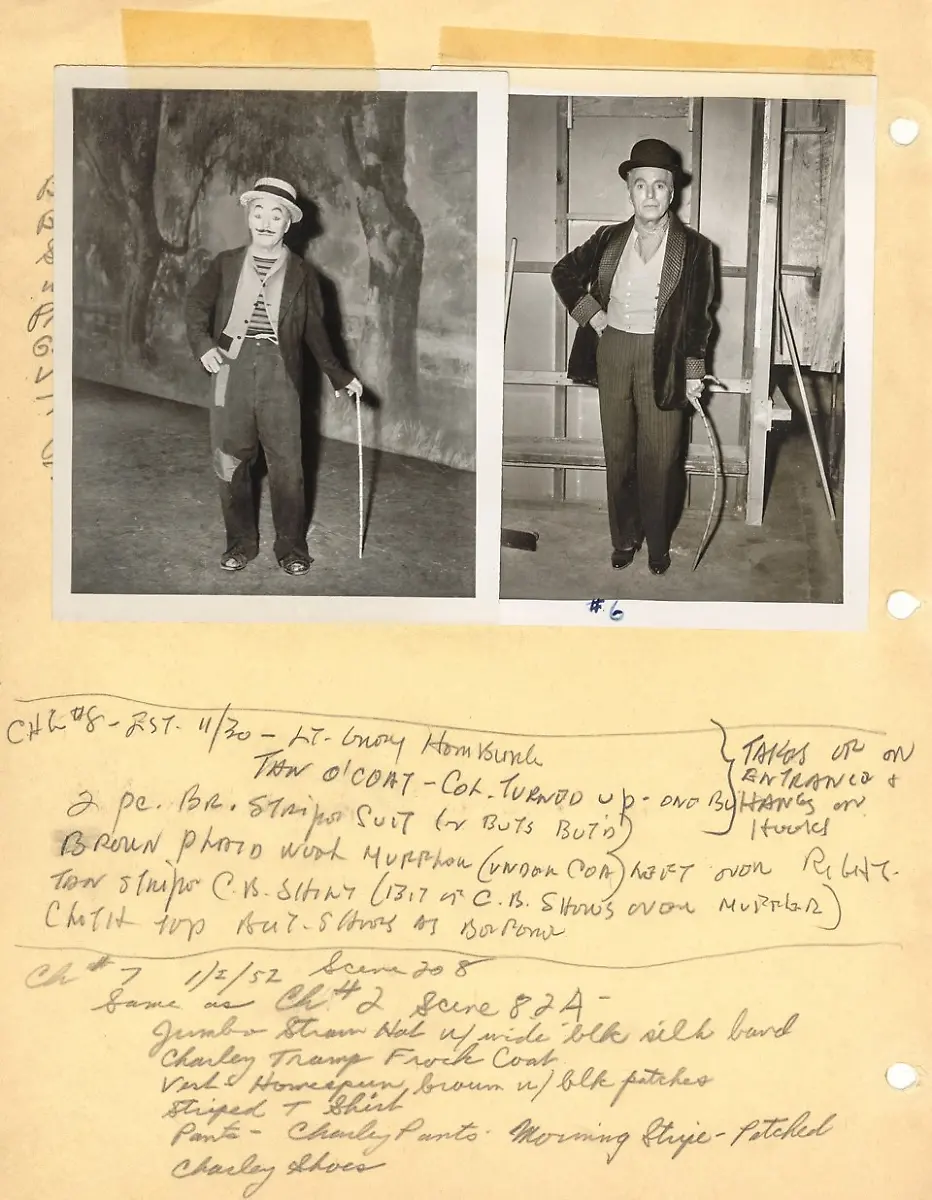 #6
CHG #8 - EST. 11/30 - LT. Gray HomBurg
TAN O'COAT - COL. TURNED up - ONE BUT
2 pc. BR. Stripe SUIT (2 BUTS BUT'D)
BROWN PLAID WOOL MUFFLER (UNDER COA) LEFT over RIGHT.
TAN Stripe C.B. SHIRT (BIT OF C.B. SHOWS OVER MUFFLER)
CLOTH TOP BUT. SHOES AS BEFORE
TAKES OFF ON
ENTRANCE &
HANGS ON
HOOKS
Ch #7 1/2/52 Scene 208
Same as Ch #2 Scene 82A -
Jumbo Straw Hat w/ wide blk silk band
Charley Tramp Frock Coat
Vest - Homespun brown w/ blk patches
Striped T Shirt
Pants - Charley Pants. Morning Stripe - Patched
Charley Shoes